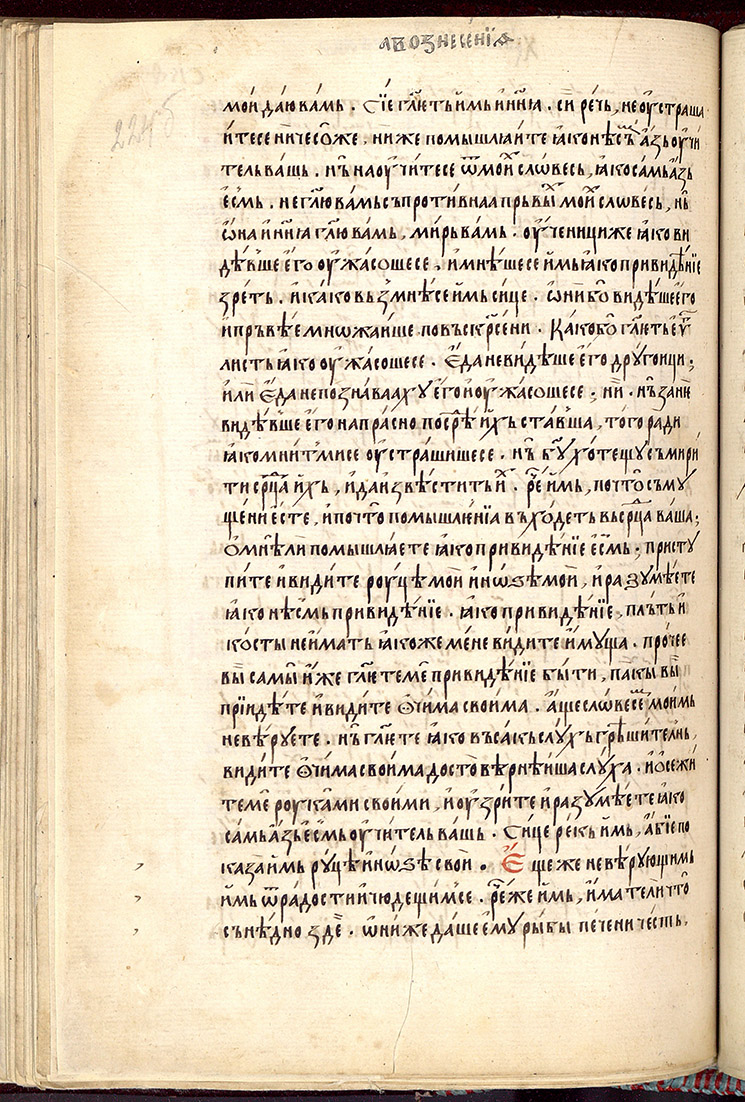 л҃ вознесенїа
мои́ даю̀ва́мь . Сїе гл҃ть и́мь и҆нн҃ꙗ . си рѣчь , не оу҆страша
и́тесе ниче́соже , ни же помышлꙗи́те ꙗ҆ко нѣ́смь а҆́зь оу҆чи
тель ва́шь . нь̀ наоу҆чи́тесе ѿ мои́х сло́весь , ꙗ҆́ко са́мь а҆́зь
є҆́смь . не гл҃ю ва́мь съпроти́внаа прь́выи҆х мои́х сло́весь , нь̀
ѡ҆́на и҆ нн҃ꙗ гл҃ю ва́мь , ми́рь ва́мь . оу҆ченици же ꙗ҆́ко ви
дѣ́вше є҆го̀ оу҆жа́сошесе , и҆ мнѣ́шесе и҆́мь ꙗ҆́ко привидѣ́нїе
зре́ть . и҆ ка́ко вьзмнѣ́се и҆́мь си́це . ѡ҆ни́ бо ви́дѣше є҆го
и прь́вѣе мно́жаише повъскрⷭ҇ени . Ка́ко бо гл҃ть є҆у҆г
листь ꙗ҆́ко оу҆жа́сошесе . Є҆да не ви́дѣше є҆го̀ дру́гоици ;
и҆ли̇̀ є҆да не позна́ваахꙋ є҆го̀ и҆ оу҆жа́сошесе ; ни̇ . нь̀ зане
видѣ́вше є҆го̀ напра́сно посрⷣѣ и҆́хь ста́вша , того̀ ра́ди
ꙗ҆ко мни́т ми се оу҆стра́шишесе . нь̀ бг҃ꙋ хоте́щꙋ съмири́
ти срⷣца и҆́хь , и҆ да и҆звѣстить и҆х . рⷱ҇е и҆́мь , почто̀ съмꙋ
ще́ни є҆сте , и҆ почто̀ помышле́нїа въхо́деть вь срⷣца ва́ша ;
ѡ҆ мнѣ́ ли помышлꙗ́ете ꙗ҆́ко привидѣ́нїе є҆́смь . пристꙋ
пи́те и҆ ви́дите роу҆цѣ́ мои̇ и҆ но́ѕѣ мои̇ , и҆ разꙋмѣ́ете
ꙗ҆́ко нѣ́смь привидѣ́нїе . ꙗ҆́ко привидѣ́нїе , пль́ть и҆
ко́сты не и҆́мать ꙗ҆́коже ме́не ви́дите и҆мꙋща . про́чее
вы̀ са́мы и҆́же гл҃ете мѐ привидѣ́нїе бы́ти , па́кы вы̀
прїидѣ́те и҆ ви́дите ѻ҆чи́ма свои́ма . а҆́ще сло́весемь мои́мь
не вѣ́рꙋете . нь̀ гл҃ете ꙗ҆́ко въса́къ слꙋ́хь грѣши́телнь ,
ви́дите ѻ҆чи́ма свои́ма достовѣ́рнѣиша слꙋ́ха . и҆ ѻ҆се́жи
те мѐ роу҆ка́ми свои́ми , и҆ оу҆зри́те и҆ разꙋмѣ́ете ꙗ҆́ко
са́мь а҆́зь є҆́смь оу҆чи́тель ва́шь . Си́це ре́кь и҆́мь , а҆́бїе по
каза̀ и҆́мь рꙋцѣ̀ и҆ но́ѕѣ свои̇ . Є҆ще же не вѣ́рꙋющимь
и҆́мь ѿ ра́дости и҆ чюде́щимсе . рⷱ҇е же и҆́мь , и҆́мате ли что̀
сънѣ́дно здѐ . ѡ҆ни́ же да́ше є҆мꙋ̀ ры́бы пе́чени че́сть .